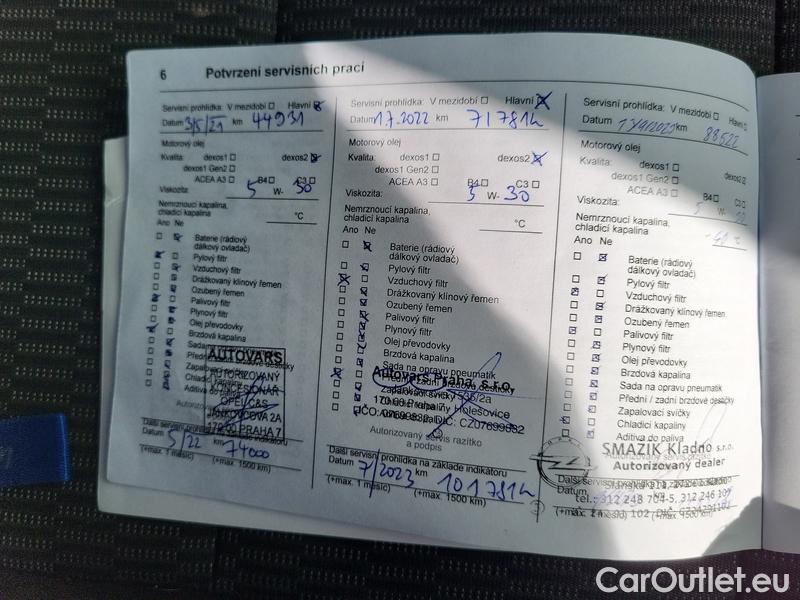 6 Potvrzení servisních prací
Servisní prohlídka: V mezidobí Hlavní
Datum 3/5/21 km 44931
Motorový olej
Kvalita: dexos1 dexos2
dexos1 Gen2
ACEA A3 B4 C3
Viskozita: 5 W- 30
Nemrznoucí kapalina,
chladicí kapalina °C
Ano Ne
Baterie (rádiový
dálkový ovladač)
Pylový filtr
Vzduchový filtr
Drážkovaný klínový řemen
Ozubený řemen
Palivový filtr
Plynový filtr
Olej převodovky
Brzdová kapalina
Sada
Přední
Zapalovací
Chladicí kapalina
Aditiva do paliva
AUTOVARS
AUTORIZOVANÝ
OPEL C&S
JANKOVCOVA 2A
170 00 PRAHA 7
Datum 5/22 km 74000
(+max. 1 měsíc) (+max. 1500 km)
Servisní prohlídka: V mezidobí Hlavní
Datum 1.7.2022 km 71781
Motorový olej
Kvalita: dexos1 dexos2
dexos1 Gen2
ACEA A3 B4 C3
Viskozita: 5 W- 30
Nemrznoucí kapalina,
chladicí kapalina °C
Ano Ne
Baterie (rádiový
dálkový ovladač)
Pylový filtr
Vzduchový filtr
Drážkovaný klínový řemen
Ozubený řemen
Palivový filtr
Plynový filtr
Olej převodovky
Brzdová kapalina
Sada na opravu pneumatik
Přední / zadní brzdové destičky
Zapalovací svíčky
Autovars Praha, s.r.o.
170 00 Praha 7, Holešovice
IČO: 07699832 DIČ: CZ07699832
Autorizovaný servis razítko
a podpis
Další servisní prohlídka na základě indikátoru
Datum 7/2023 km 101781
(+max. 1 měsíc) (+max. 1500 km)
Servisní prohlídka: V mezidobí Hlavní
Datum km 88522
Motorový olej
Kvalita: dexos1 dexos2
dexos1 Gen2
ACEA A3 B4 C3
Viskozita: 5 W-
Nemrznoucí kapalina,
chladicí kapalina °C
Ano Ne
Baterie (rádiový
dálkový ovladač)
Pylový filtr
Vzduchový filtr
Drážkovaný klínový řemen
Ozubený řemen
Palivový filtr
Plynový filtr
Olej převodovky
Brzdová kapalina
Sada na opravu pneumatik
Přední / zadní brzdové destičky
Zapalovací svíčky
Chladicí kapalina
Aditiva do paliva
SMAZIK Kladno s.r.o.
Autorizovaný dealer
Datum
tel.: 312 248 704-5, 312 246 109
CarOutlet.eu